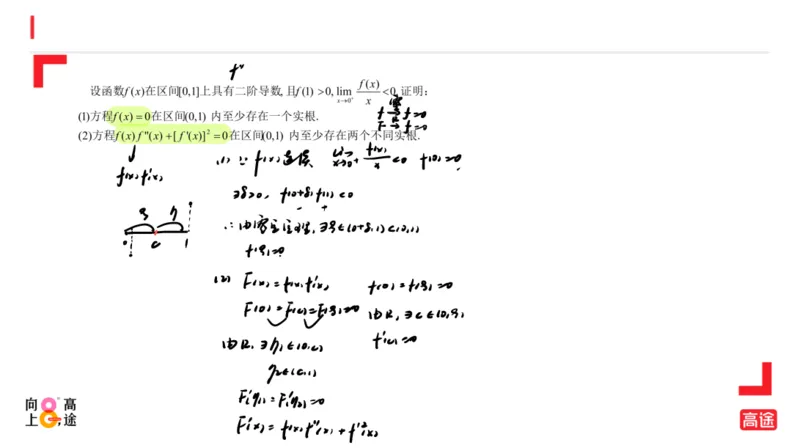 f''
设函数f(x)在区间[0,1]上具有二阶导数,且f(1) >0, lim x→0⁺ f(x)/x <0,证明:
(1)方程f(x)=0在区间(0,1) 内至少存在一个实根.
(2)方程f(x)f''(x)+[f'(x)]²=0在区间(0,1) 内至少存在两个不同实根.
f(x)f'(x)
(1) ∵ f(x)连续 lim x→0⁺ f(x)/x <0 f(0)=0
∃δ>0, f(0+δ)f(1)<0
- +
∴由零点定理,∃ξ∈(0+δ,1)⊂(0,1)
f(ξ)=0
ξ η
0 c 1
(2) F(x)=f(x)f'(x) f(0)=f(ξ)=0
F(0)=F(c)=F(ξ)=0 由R,∃c∈(0,ξ)
由R,∃η₁∈(0,c) f'(c)=0
η₂∈(c,1)
F'(η₁)=F'(η₂)=0
F'(x)=f(x)f''(x)+f'²(x)
向上 高途
高途